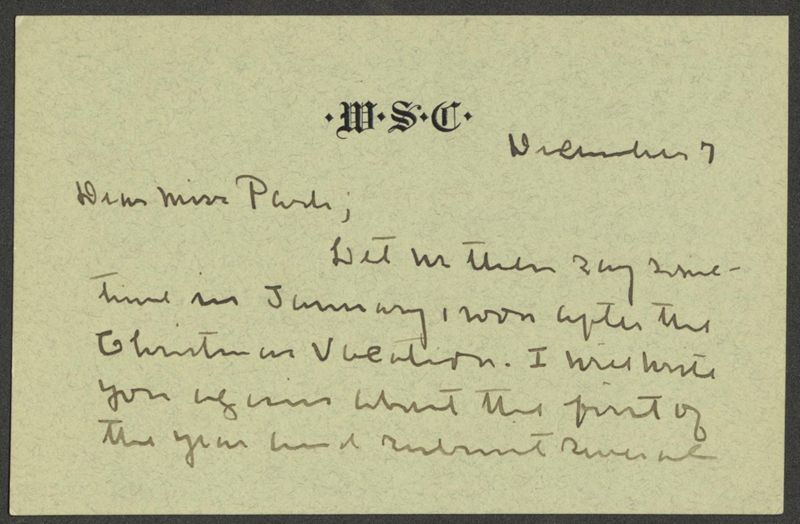 ·W·S·C·
December 7
Dear Miss Park;
Let us then say some-
time in January, soon after the
Christmas Vacation. I will write
you again about the first of
the year and submit several